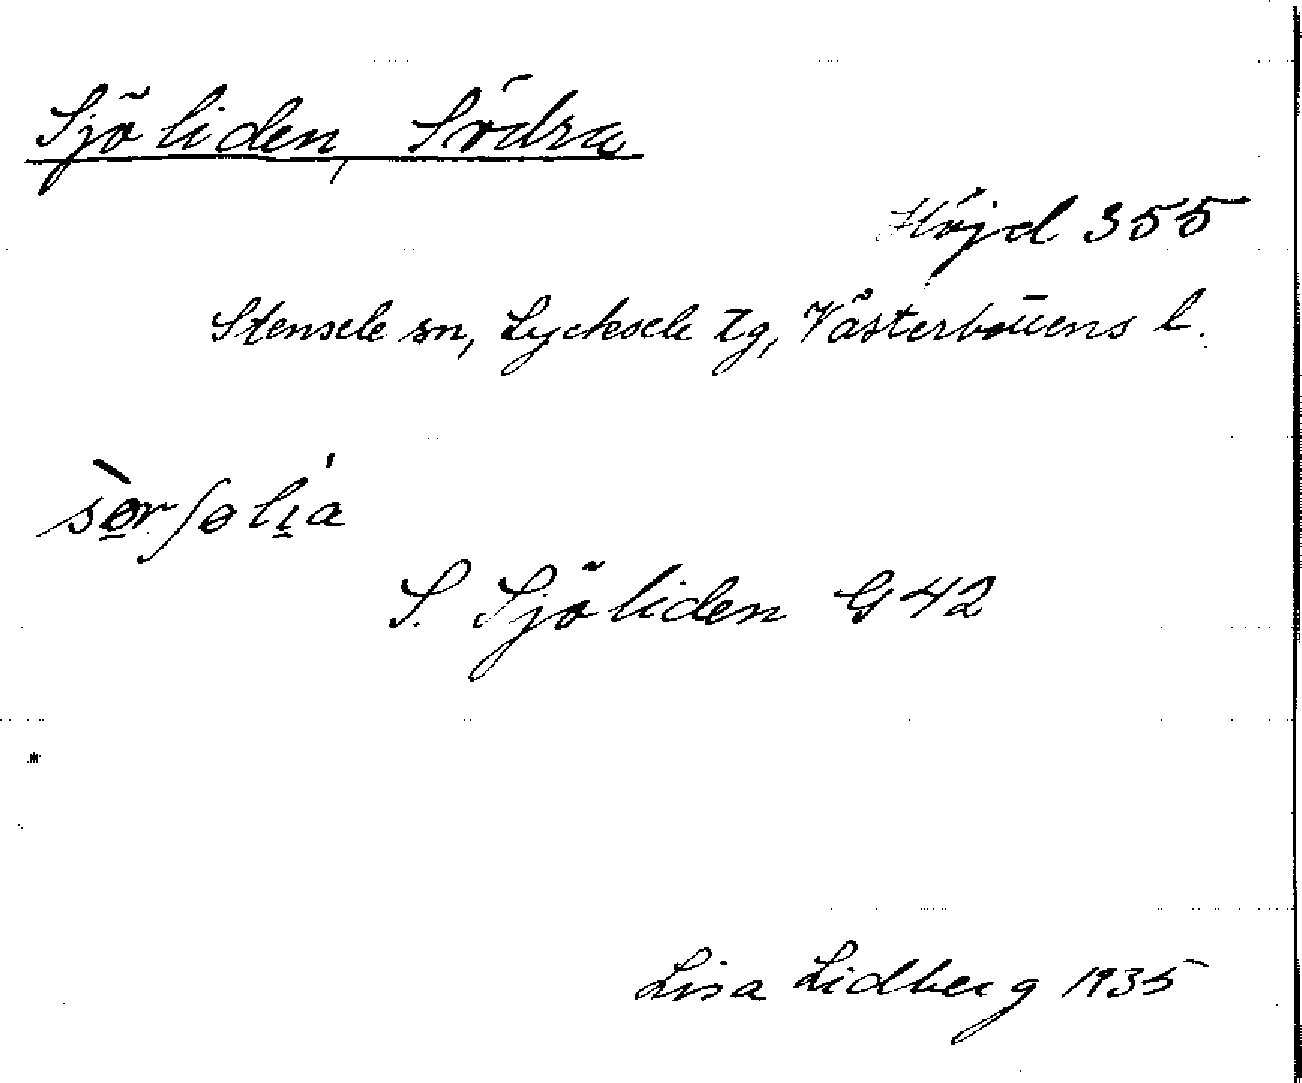 Sjöliden, Södra
Höjd 355
Stensele sn, Lycksele tg, Västerbottens l.
sørʃølia
S. Sjöliden G 42
Lisa Lidberg 1935